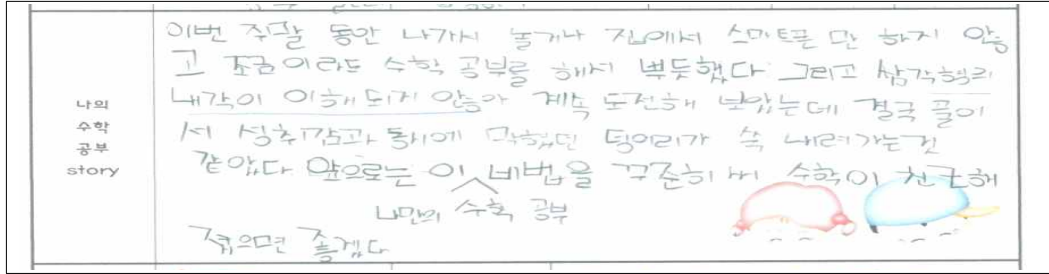 나의
수학
공부
story
이번 주말 동안 나가서 놀거나 집에서 스마트폰 만 하지 안능
고 조금이라도 수학 공부를 해서 뿌듯했다 그리고 삼각형의
내각이 이해 되지 안능아 계속 도전해 보았는데 결국 풀어
서 성취감과 동시에 막혔던 덩어리가 쑥 내려가는것
같았다 앞으로는 이 비법을 꾸준히 써 수학이 친근해
나만의 수학 공부
졌으면 좋겠다